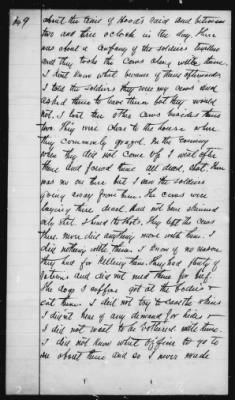 49
about the time of Hood's raid and between
two and three o'clock in the day. There
was about a company of the soldiers together
and they took the cows along with them.
I dont know what became of them afterwards
I told the soldiers they were my cows and
asked them to leave them but they would
not. I lost two other cows besides these
two they were close to the house where
they commonly grazed. In the evening
when they did not come up I went after
them and found them all dead, shot. There
was no one there but I saw the soldiers
going away from there. The cows were
laying there dead had not been skinned
only still shot. They left the cows
there never did anything more with them. I
did nothing with them. I know of no reason
they had for killing them. They had plenty of
rations and did not need them for beef.
The dogs I suppose got at the bodies &
eat them. I did not try to save the skins
I didn't hear of any demand for hides &
I did not want to be bothered with them.
I did not know what officer to go to
see about them and so I never made